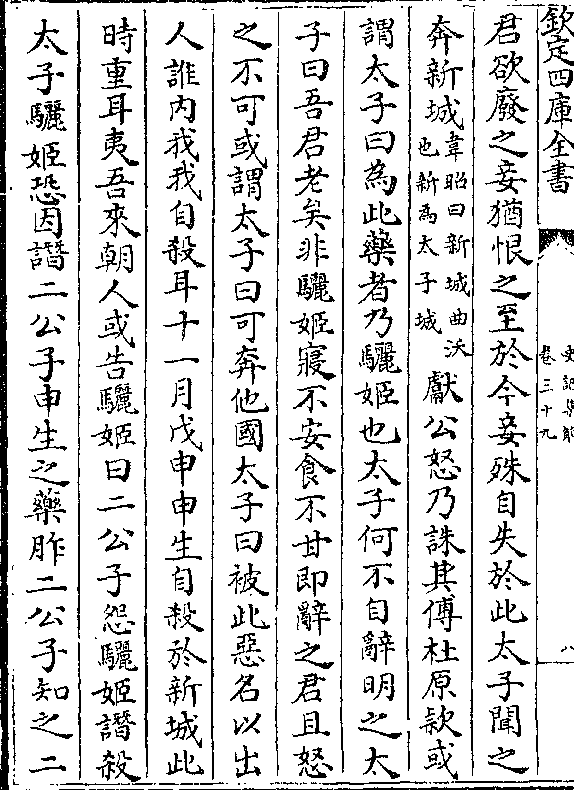 欽定四庫全書
史記集解
卷三十九
八
君欲廢之妾猶恨之至於今妾殊自失於此太子聞之
奔新城韋昭曰新城曲沃也新為太子城獻公怒乃誅其傅杜原款或
謂太子曰為此藥者乃驪姬也太子何不自辭明之太
子曰吾君老矣非驪姬寢不安食不甘即辭之君且怒
之不可或謂太子曰可奔他國太子曰被此惡名以出
人誰內我我自殺耳十一月戊申申生自殺於新城此
時重耳夷吾來朝人或告驪姬曰二公子怨驪姬譖殺
太子驪姬恐因譖二公子申生之藥胙二公子知之二